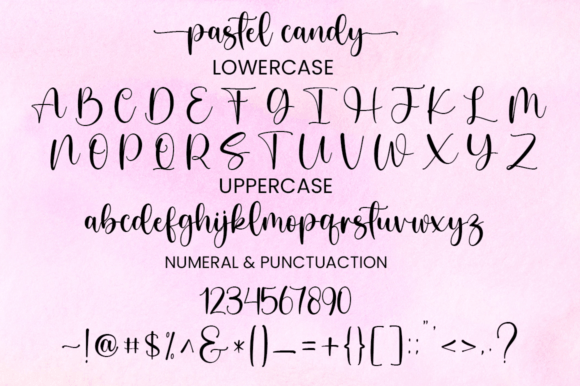 pastel candy
LOWERCASE
A B C D E F G I H J K L M
N O P Q R S T U V W X Y Z
UPPERCASE
abcdefghijklmopqrstuvwxyz
NUMERAL & PUNCTUACTION
1234567890
~!@#$%^&*()_=+{}[]:;"'<>,.?